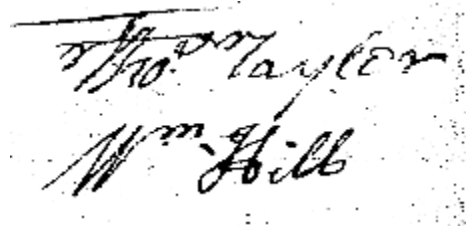 Tho.s Taylor
Wm. Hill